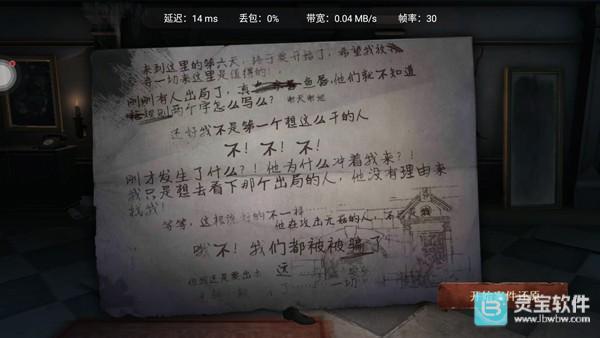 延迟：14 ms 丢包：0% 带宽：0.04 MB/s 帧率：30
来到这里的第六天，终于要开始了，希望我放
弃一切来这里是值得的！
刚刚有人出局了，真 鱼唇，他们就不知道
规则两个字怎么写么？ 谢天谢地
还好我不是第一个想这么干的人
不！不！不！
刚才发生了什么？！他为什么冲着我来？！
我只是想去看下那个出局的人，他没有理由来
找我！
等等，这根说好的不一样
他在攻击无辜的人
哦不！我们都被被骗了
但我还是要出去
远
一切
开始案件还原
灵宝软件
www.lbwbw.com